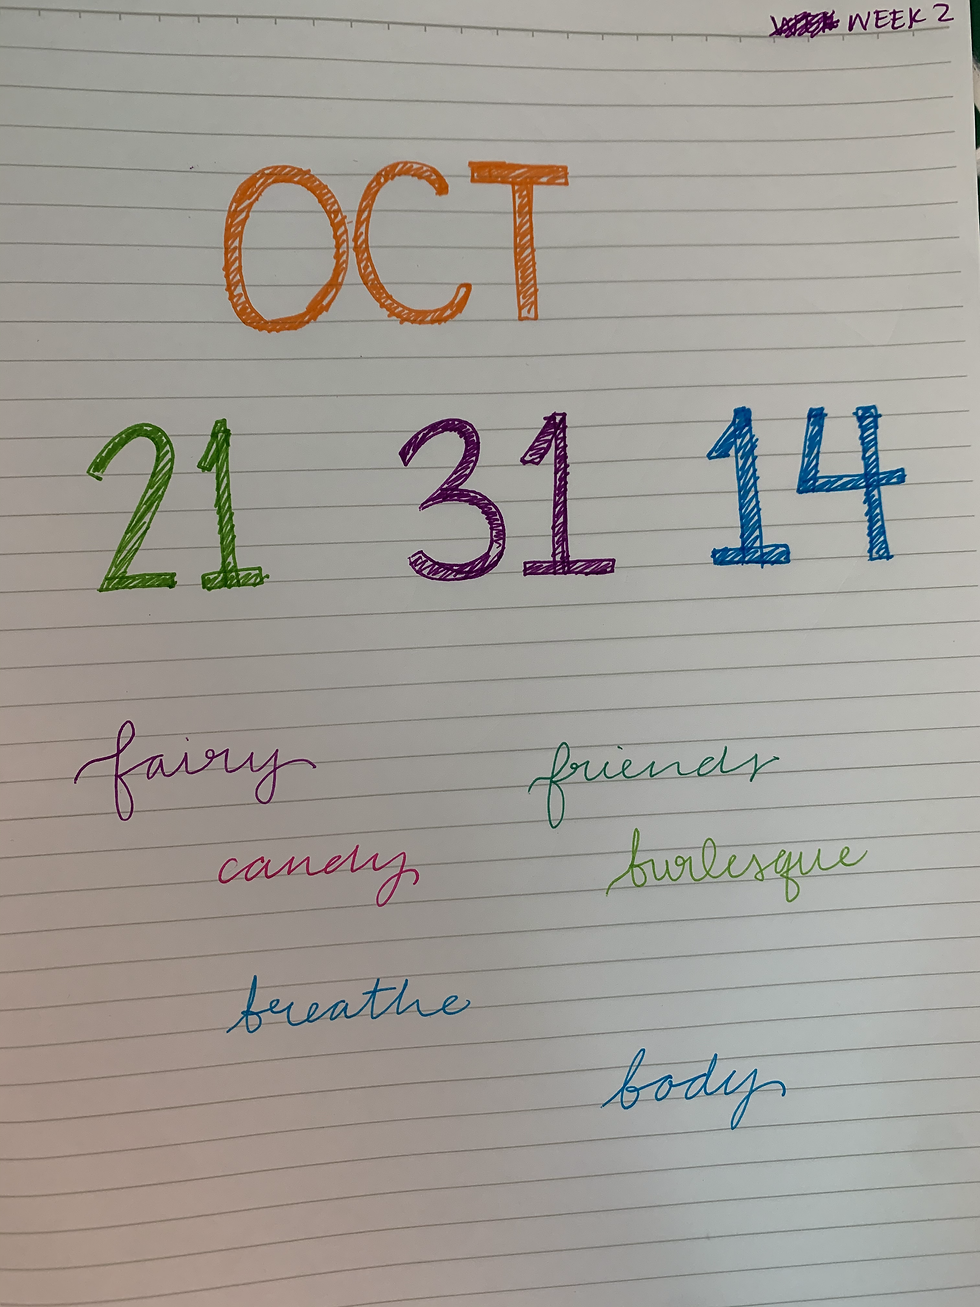 WEEK 2
OCT
21 31 14
fairy friends
candy burlesque
breathe
body